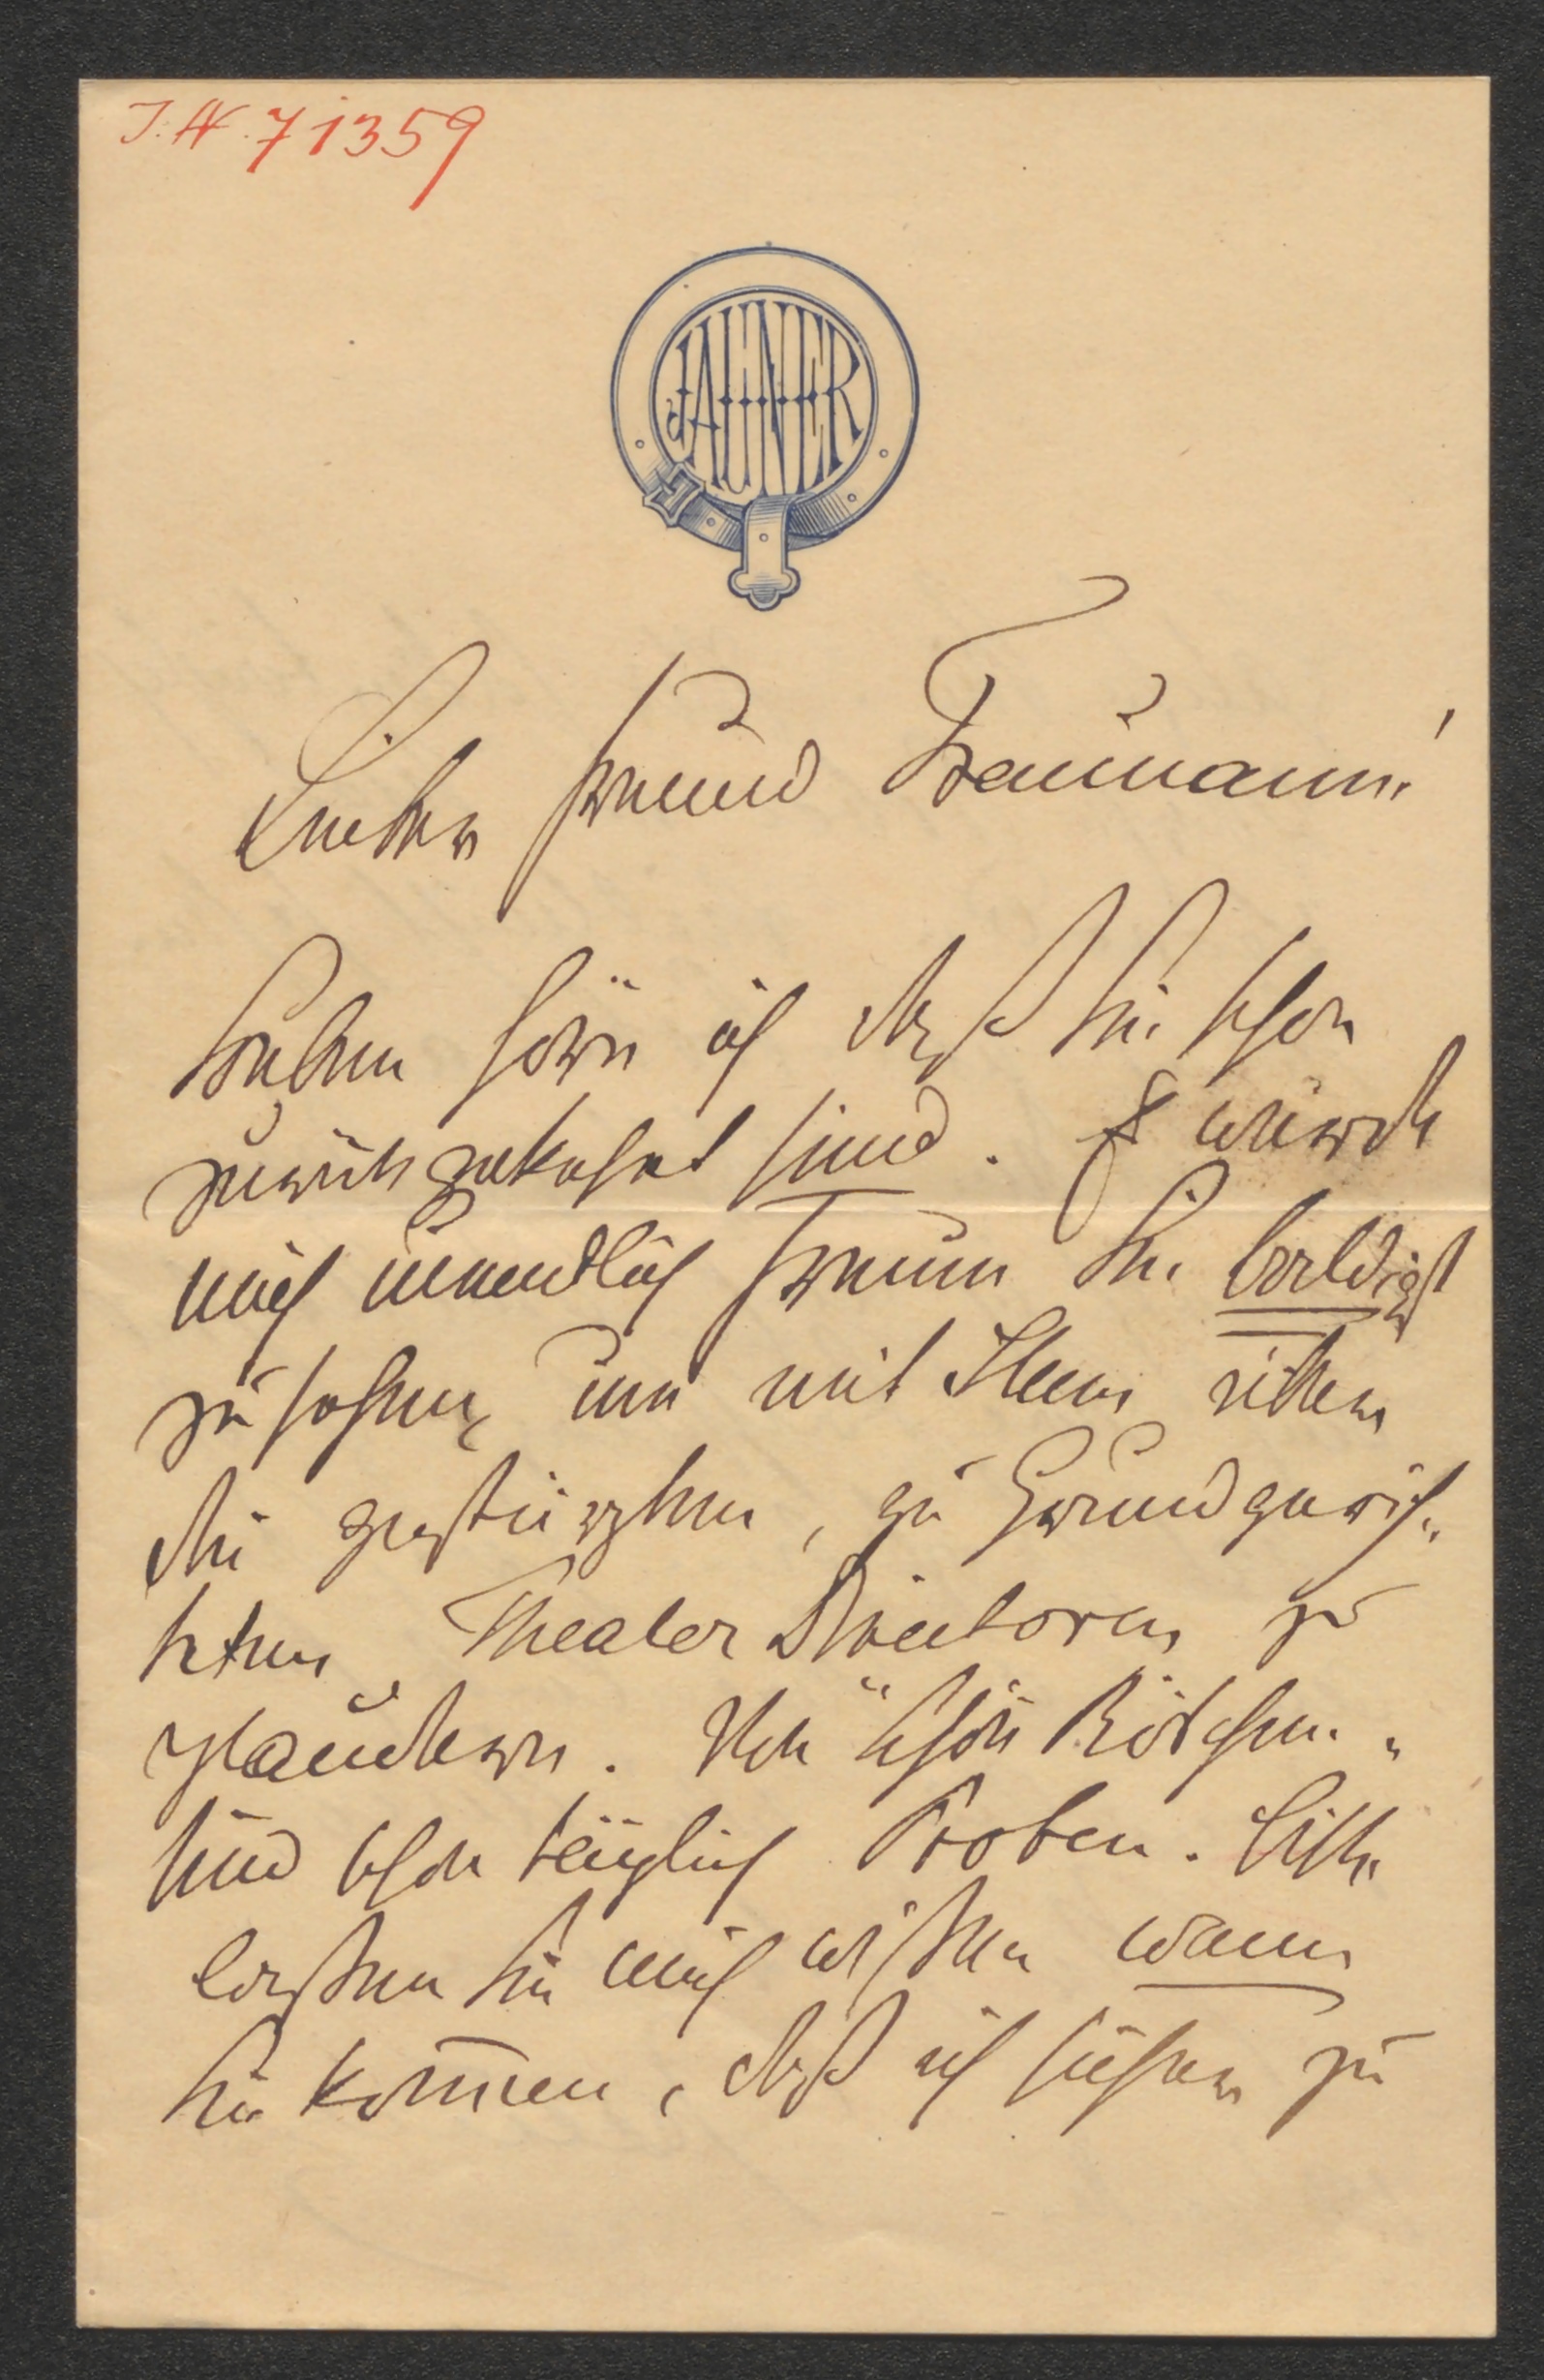 J.N. 71359
JAUNER
Lieber Freund Taumann!
Soeben höre ich daß Sie schon
zurückgekehrt sind. Es würde
mich unendlich freuen Sie baldigst
zu sehen, um mit Ihnen über
die gestürzten, zu Grund gerich"
teten Theater Direktoren zu
plaudern. Von "schön Röschen"
sind schon täglich Proben. Bitte
lassen Sie mich wissen wann
Sie kommen, daß ich sicher zu